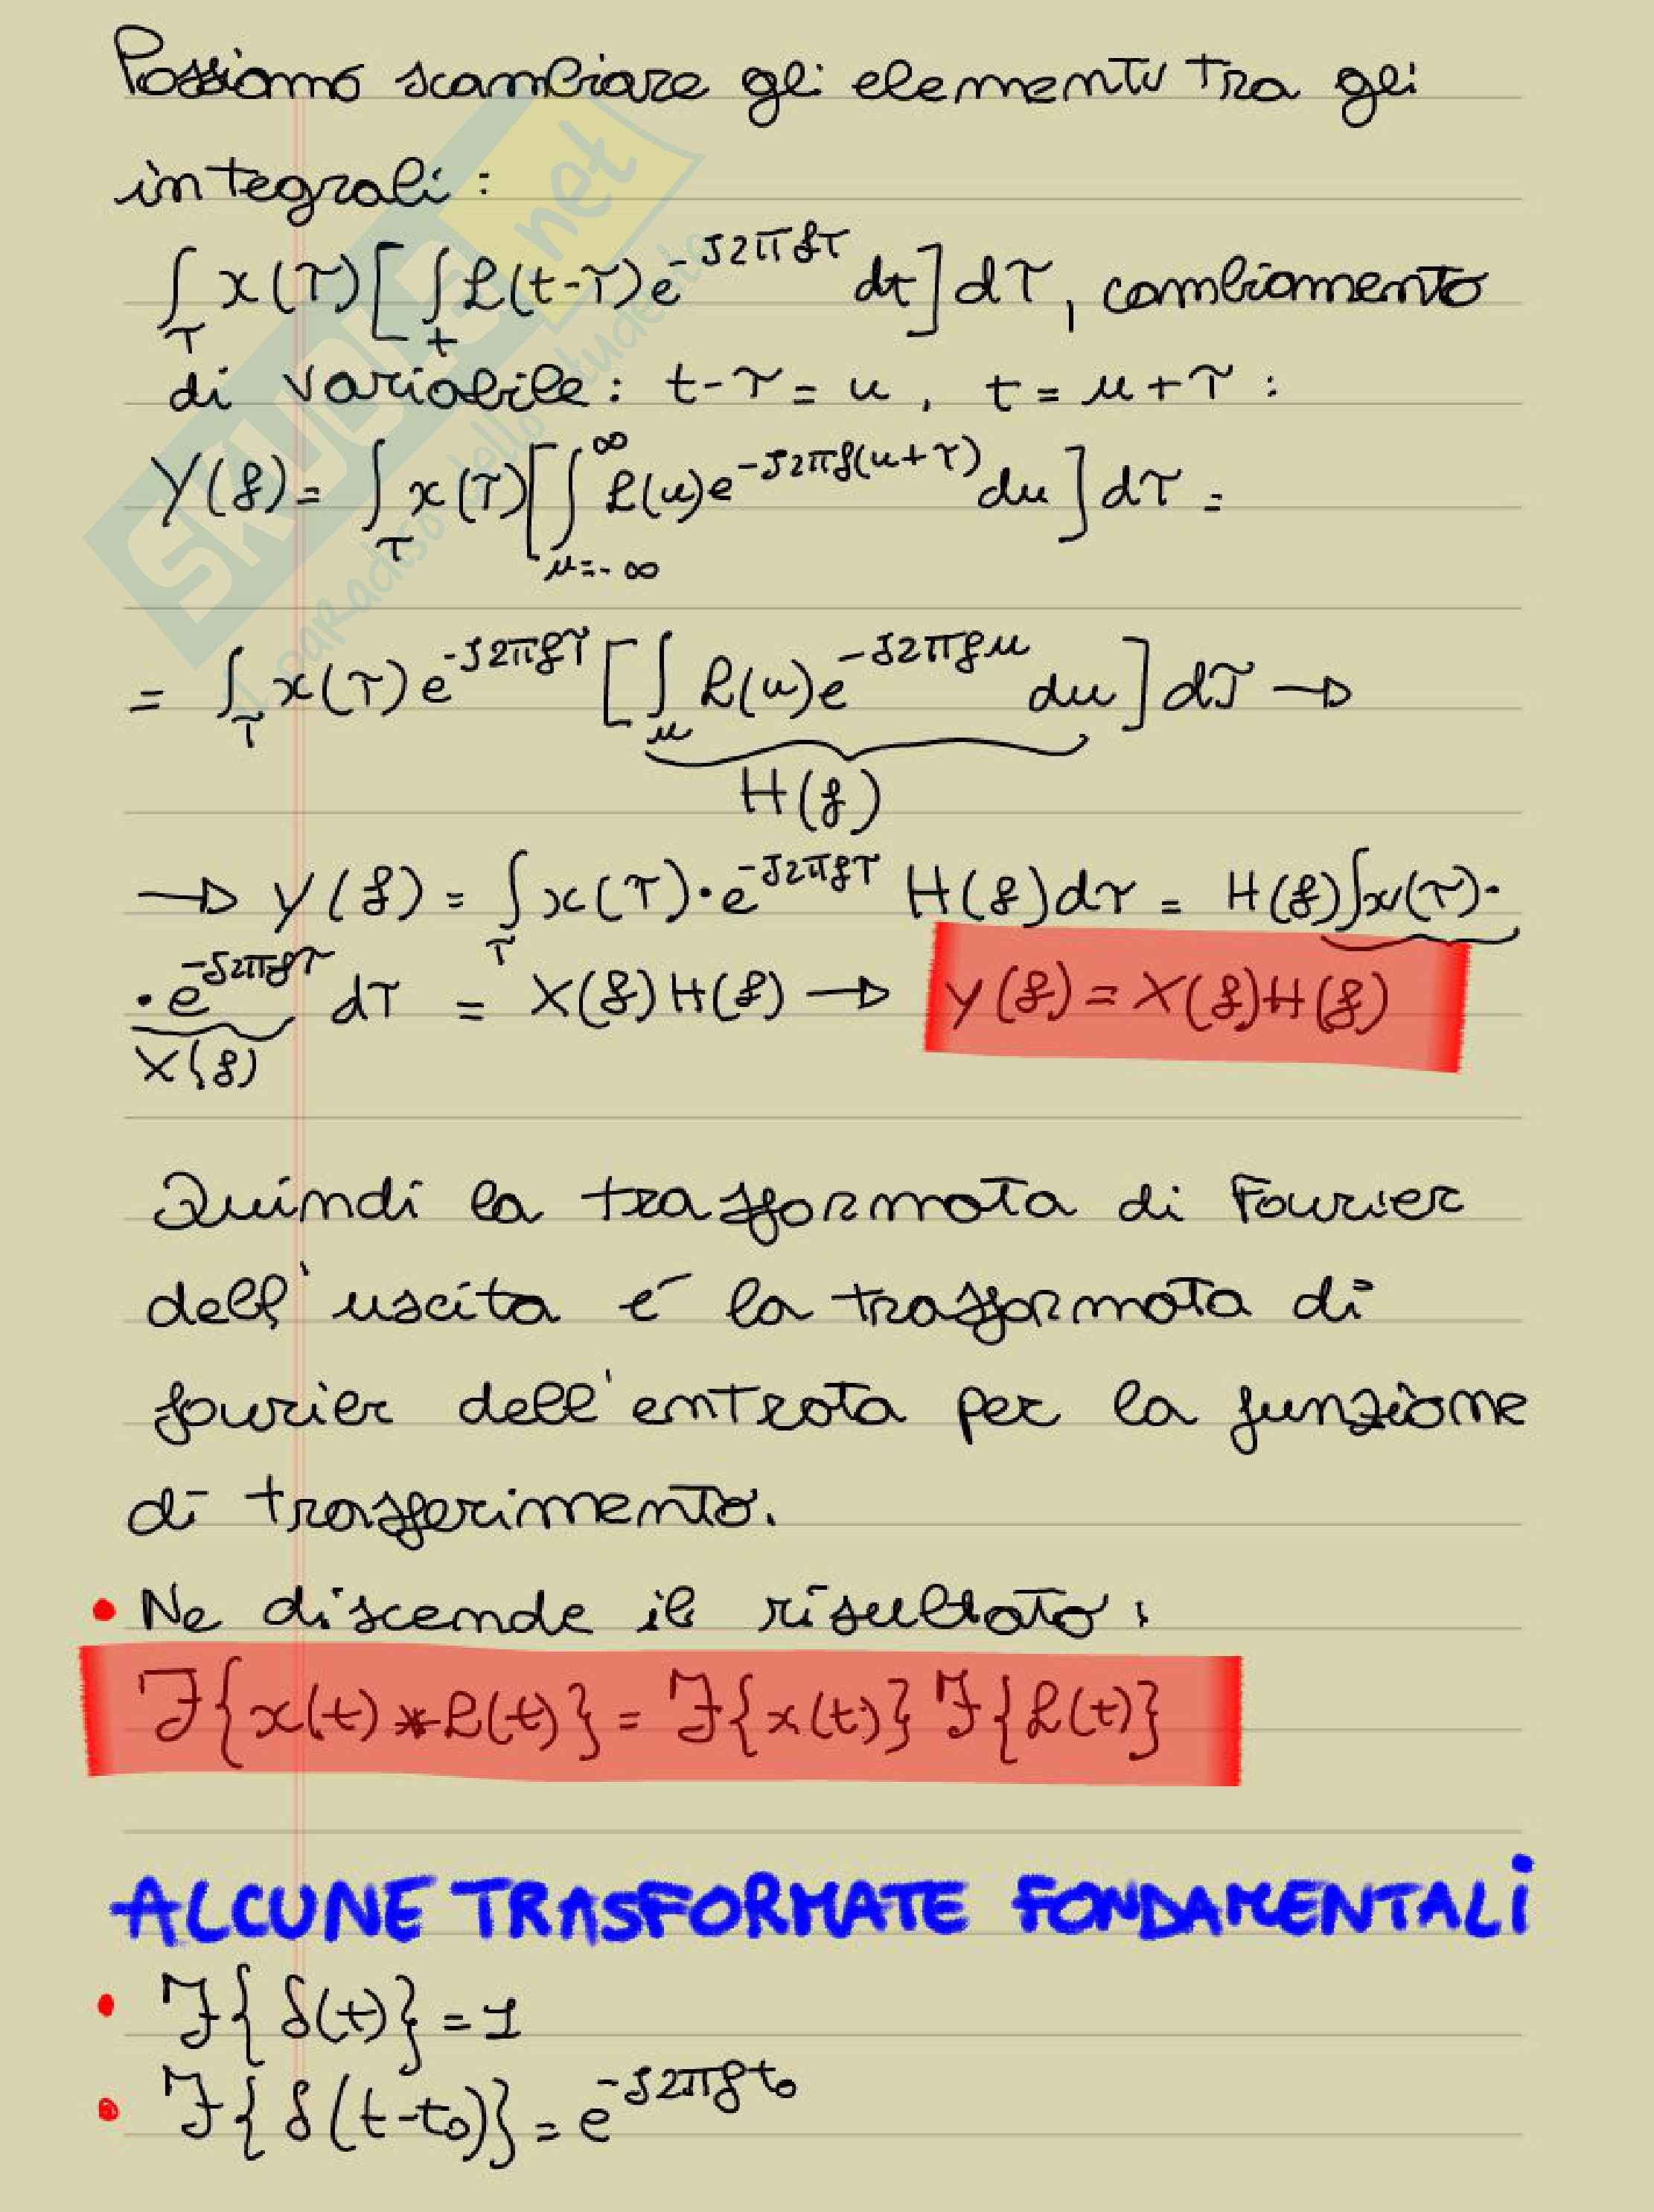 Possiamo scambiare gli elementi tra gli
integrali:
∫_τ x(τ)[∫_t h(t-τ)e^{-J2πfτ} dt]dτ, cambiamento
di variabile: t-τ = u, t = u+τ :
Y(f) = ∫_τ x(τ)[∫_{u=-∞}^{∞} h(u)e^{-J2πf(u+τ)} du]dτ =
= ∫_τ x(τ)e^{-J2πfτ} [∫_u h(u)e^{-J2πfu} du]dτ →
H(f)
→ Y(f) = ∫_τ x(τ)·e^{-J2πfτ} H(f)dτ = H(f)∫x(τ)·
·e^{-J2πfτ} dτ = X(f)H(f) → Y(f) = X(f)H(f)
X(f)
Quindi la trasformata di Fourier
dell'uscita é la trasformata di
fourier dell'entrata per la funzione
di trasferimento.
• Ne discende il risultato:
F{x(t)*h(t)} = F{x(t)} F{h(t)}
ALCUNE TRASFORMATE FONDAMENTALI
• F{δ(t)} = 1
• F{δ(t-t₀)} = e^{-J2πft₀}
SKUOLA.net
il paradiso dello studente